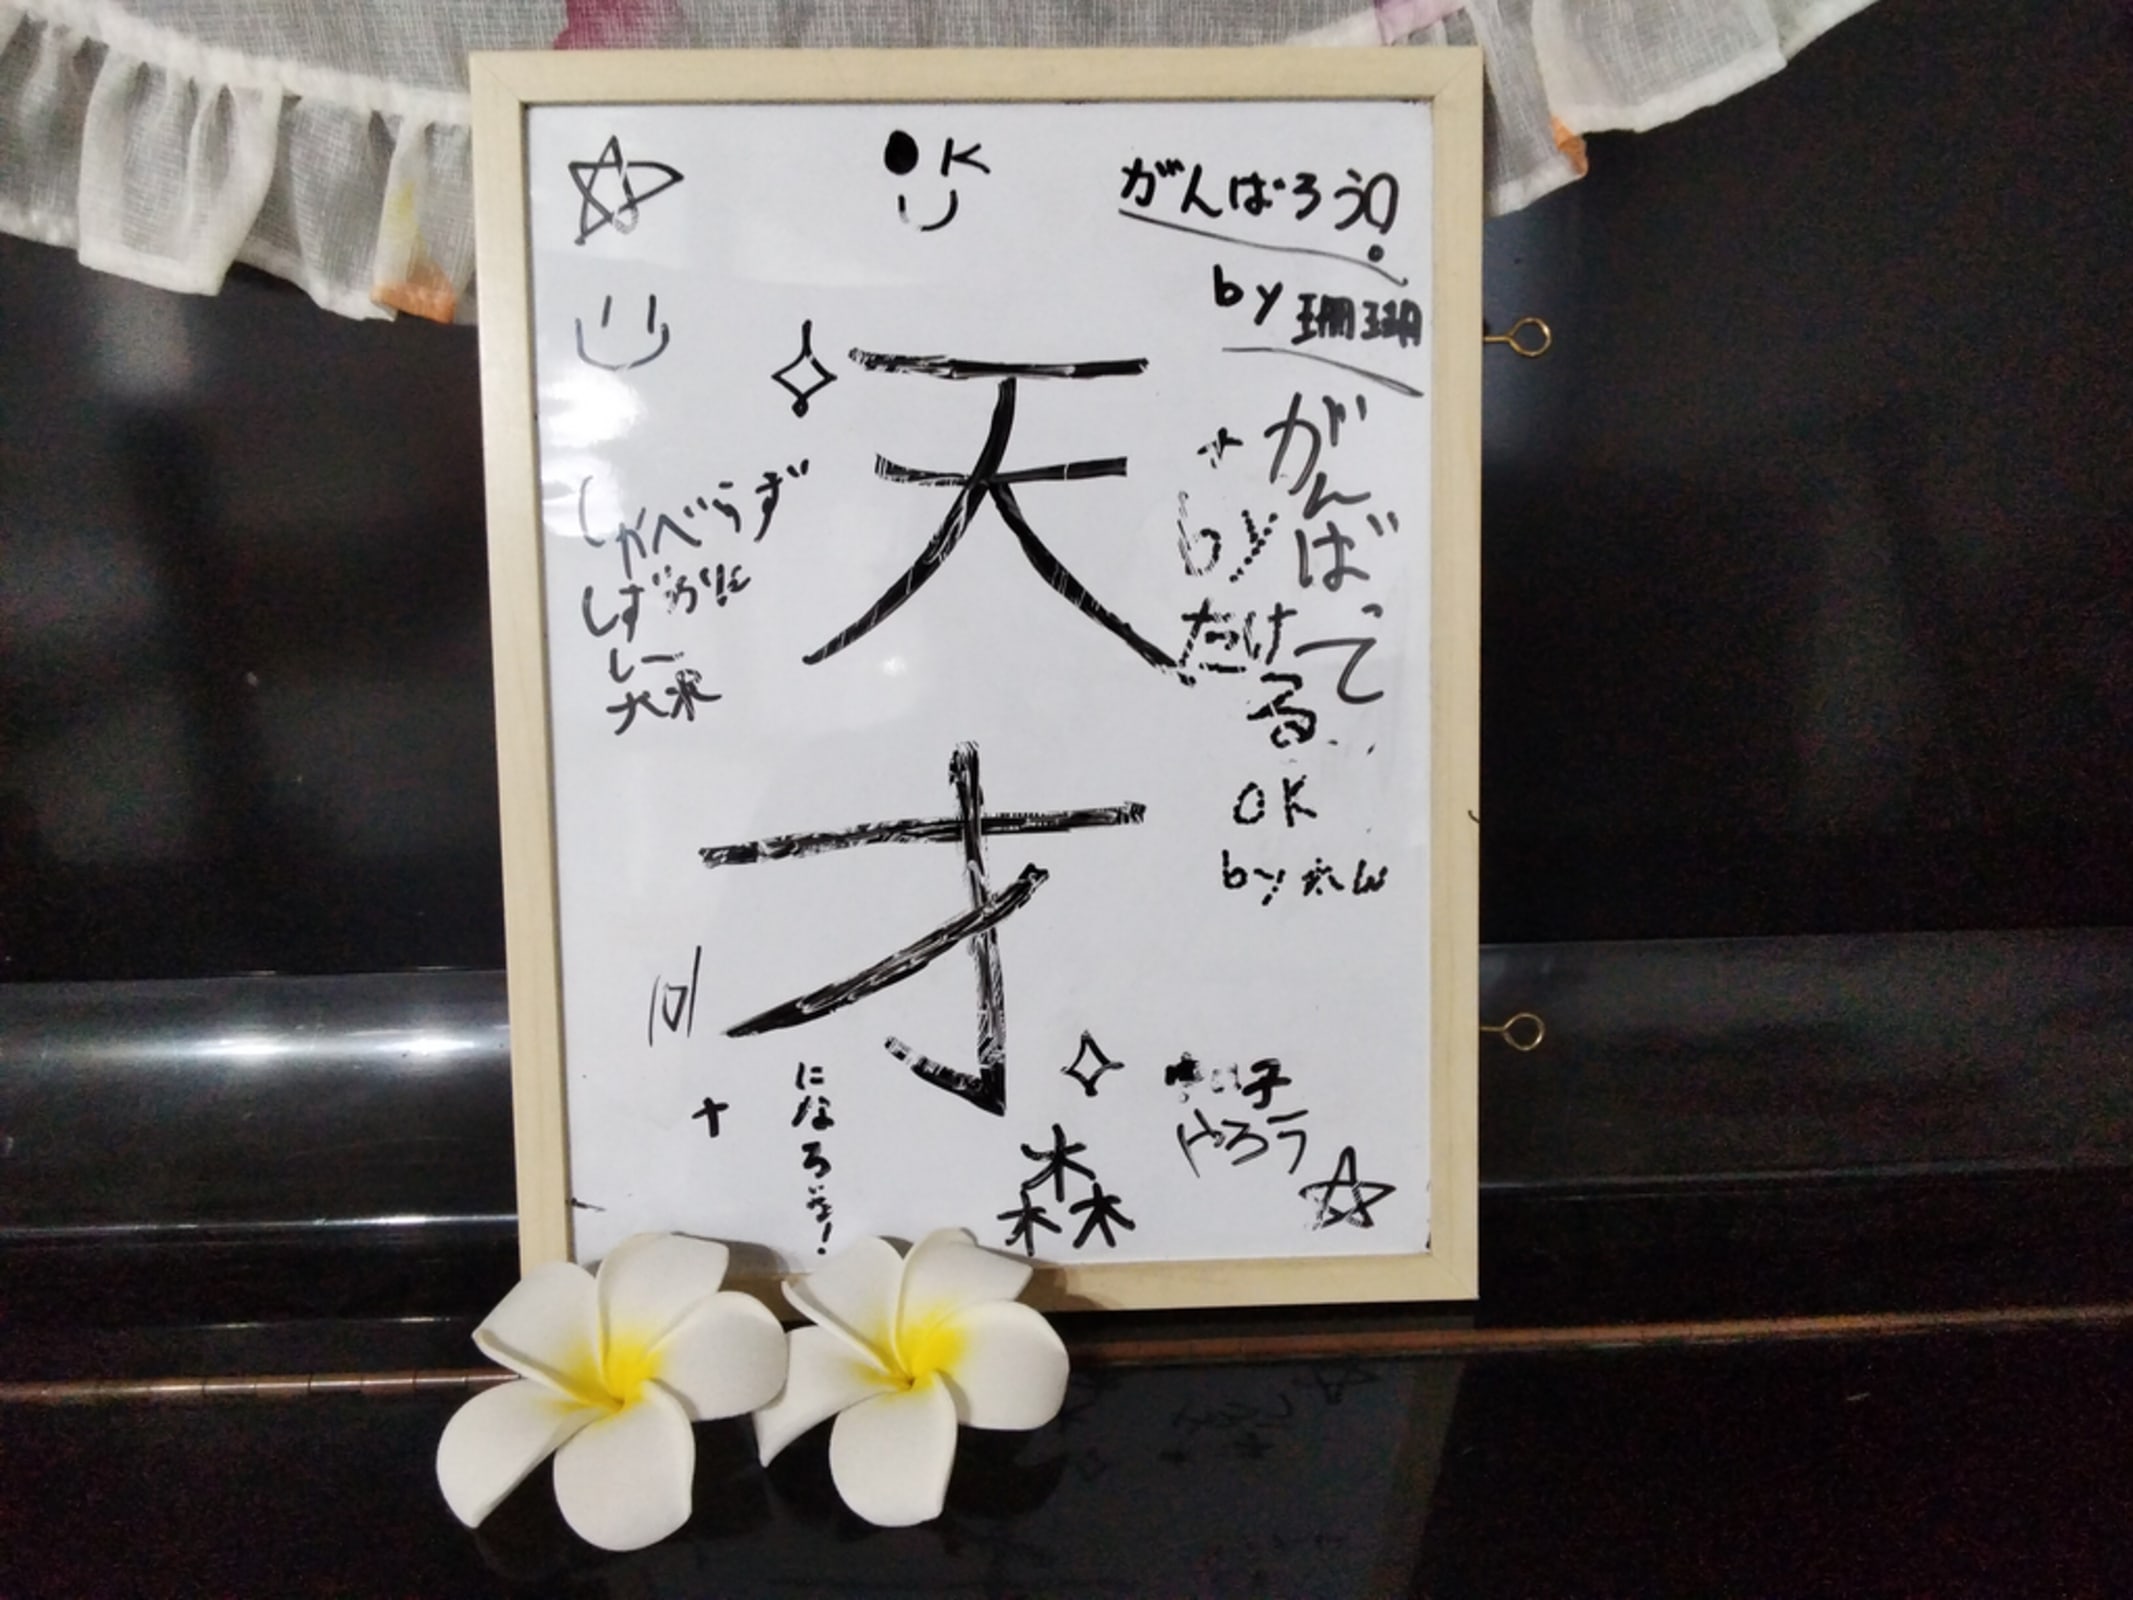 OK
がんばろう!
by 珊瑚
天才
がんばって
by
たける
しゃべらず
しずかに
OK
by れん
になろうぜ!
やろう
森